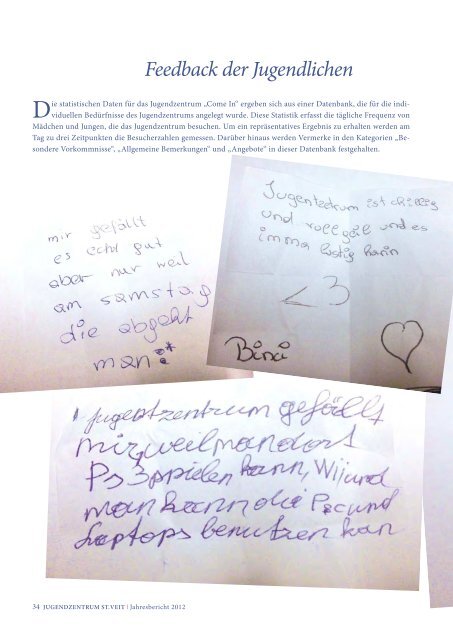 Feedback der Jugendlichen
Die statistischen Daten für das Jugendzentrum „Come In“ ergeben sich aus einer Datenbank, die für die indi-
viduellen Bedürfnisse des Jugendzentrums angelegt wurde. Diese Statistik erfasst die tägliche Frequenz von
Mädchen und Jungen, die das Jugendzentrum besuchen. Um ein repräsentatives Ergebnis zu erhalten werden am
Tag zu drei Zeitpunkten die Besucherzahlen gemessen. Darüber hinaus werden Vermerke in den Kategorien „Be-
sondere Vorkommnisse“, „Allgemeine Bemerkungen“ und „Angebote“ in dieser Datenbank festgehalten.
mir gefällt
es echt gut
aber nur weil
am samstag
die abgeht
man
Jugentzdrum ist chillig
und voll geil und es
imma lustig harin
<3
Bini
jugentzentrum gefällt
mir, weil man dort
Ps 3 spielen kann, Wij und
man kann die Pc und
Laptops benutzen kan
34 JUGENDZENTRUM ST.VEIT | Jahresbericht 2012